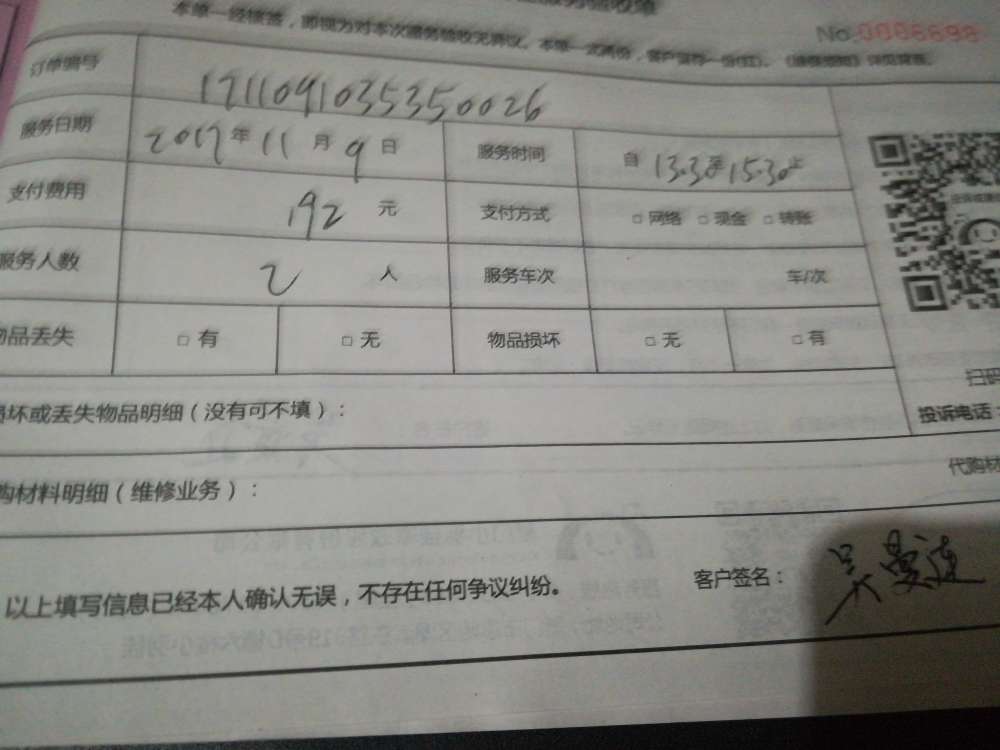 本单一经核签，即视为对本次服务验收无异议。本单一式两份，客户留存一份(红)。
No.0006698
订单编号 1711091035350026
服务日期 2017年11月9日 服务时间 自13.30至15.30止
支付费用 192元 支付方式 □网络 □现金 □转账
服务人数 2人 服务车次 车/次
物品丢失 □有 □无 物品损坏 □无 □有
扫码
损坏或丢失物品明细（没有可不填）：
投诉电话：
购材料明细（维修业务）：
代购材
以上填写信息已经本人确认无误，不存在任何争议纠纷。 客户签名：吴曼莲